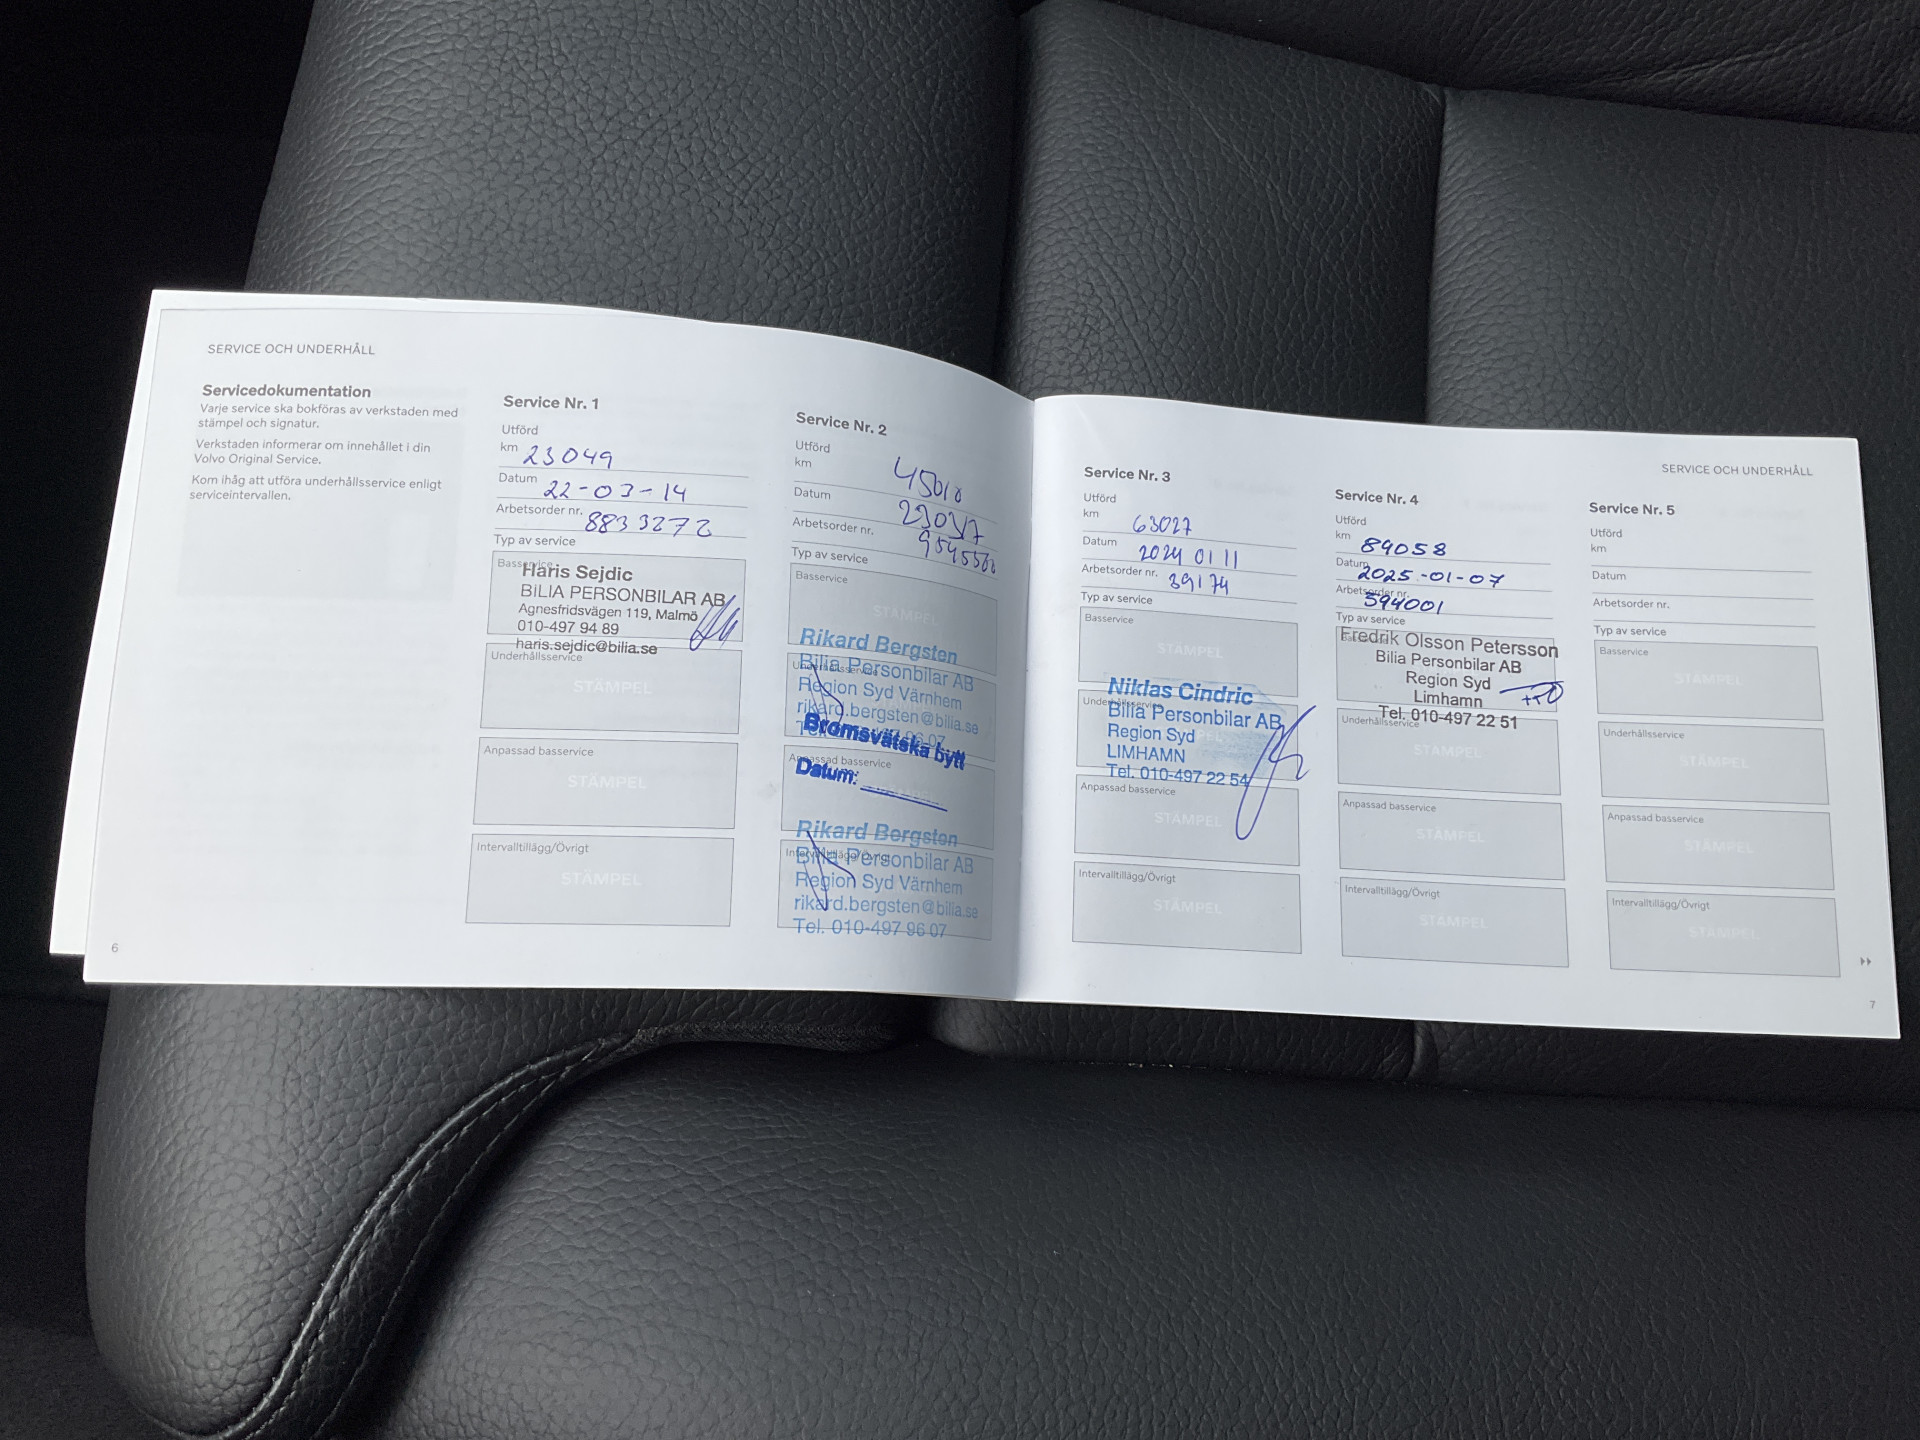 SERVICE OCH UNDERHÅLL
Servicedokumentation
Varje service ska bokföras av verkstaden med
stämpel och signatur.
Verkstaden informerar om innehållet i din
Volvo Original Service.
Kom ihåg att utföra underhållsservice enligt
serviceintervallen.
6
Service Nr. 1
Utförd
km 23049
Datum 22-03-14
Arbetsorder nr. 8833272
Typ av service
Basservice
Haris Sejdic
BILIA PERSONBILAR AB
Agnesfridsvägen 119, Malmö
010-497 94 89
haris.sejdic@bilia.se
Underhållsservice
STÄMPEL
Anpassad basservice
STÄMPEL
Intervalltillägg/Övrigt
STÄMPEL
Service Nr. 2
Utförd
km 45010
Datum
Arbetsorder nr.
Typ av service
Basservice
STÄMPEL
Rikard Bergsten
Underhållsservice
Bilia Personbilar AB
Region Syd Värnhem
rikard.bergsten@bilia.se
Bromsvätska bytt
Anpassad basservice
Datum:
Rikard Bergsten
Intervalltillägg/Övrigt
Bilia Personbilar AB
Region Syd Värnhem
rikard.bergsten@bilia.se
Tel. 010-497 96 07
SERVICE OCH UNDERHÅLL
Service Nr. 3
Utförd
km 63027
Datum 2024 01 11
Arbetsorder nr. 39174
Typ av service
Basservice
STÄMPEL
Niklas Cindric
Underhållsservice
Bilia Personbilar AB
Region Syd
LIMHAMN
Tel. 010-497 22 54
Anpassad basservice
STÄMPEL
Intervalltillägg/Övrigt
STÄMPEL
Service Nr. 4
Utförd
km 89058
Datum 2025-01-07
Arbetsorder nr. 594001
Typ av service
Fredrik Olsson Petersson
Bilia Personbilar AB
Region Syd
Limhamn
Tel. 010-497 22 51
Underhållsservice
STÄMPEL
Anpassad basservice
STÄMPEL
Intervalltillägg/Övrigt
STÄMPEL
Service Nr. 5
Utförd
km
Datum
Arbetsorder nr.
Typ av service
Basservice
STÄMPEL
Underhållsservice
STÄMPEL
Anpassad basservice
STÄMPEL
Intervalltillägg/Övrigt
STÄMPEL
7